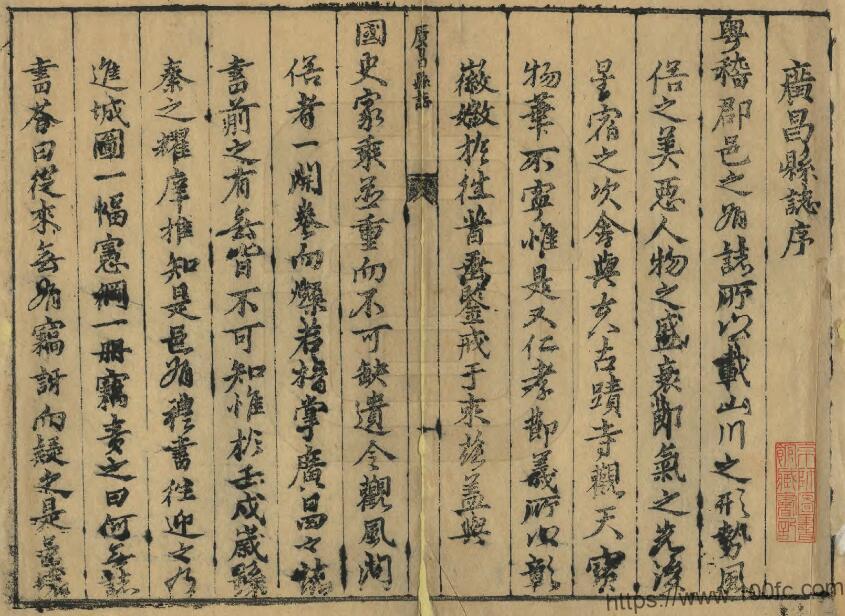 廣昌縣誌序
粵稽郡邑之有誌所以載山川之形勢風
俗之美惡人物之盛衰節氣之先後
星宿之次舍與夫古蹟寺觀天寶
物華不寧惟是又仁孝節義所以彰
徽媺於徃昔垂鑒戒于來茲蓋與
廣昌縣誌
國史家乘並重而不可缺遺令觀風問
俗者一開卷而燦若指掌廣昌之誌
書前之有無皆不可知惟於壬戌歲
秦之耀摩推知是邑有禮書往迎之
進城圖一幅憲綱一冊竊責之曰何無誌
書荅曰從來無有竊訝而疑之是邑
https://www.100fc.com